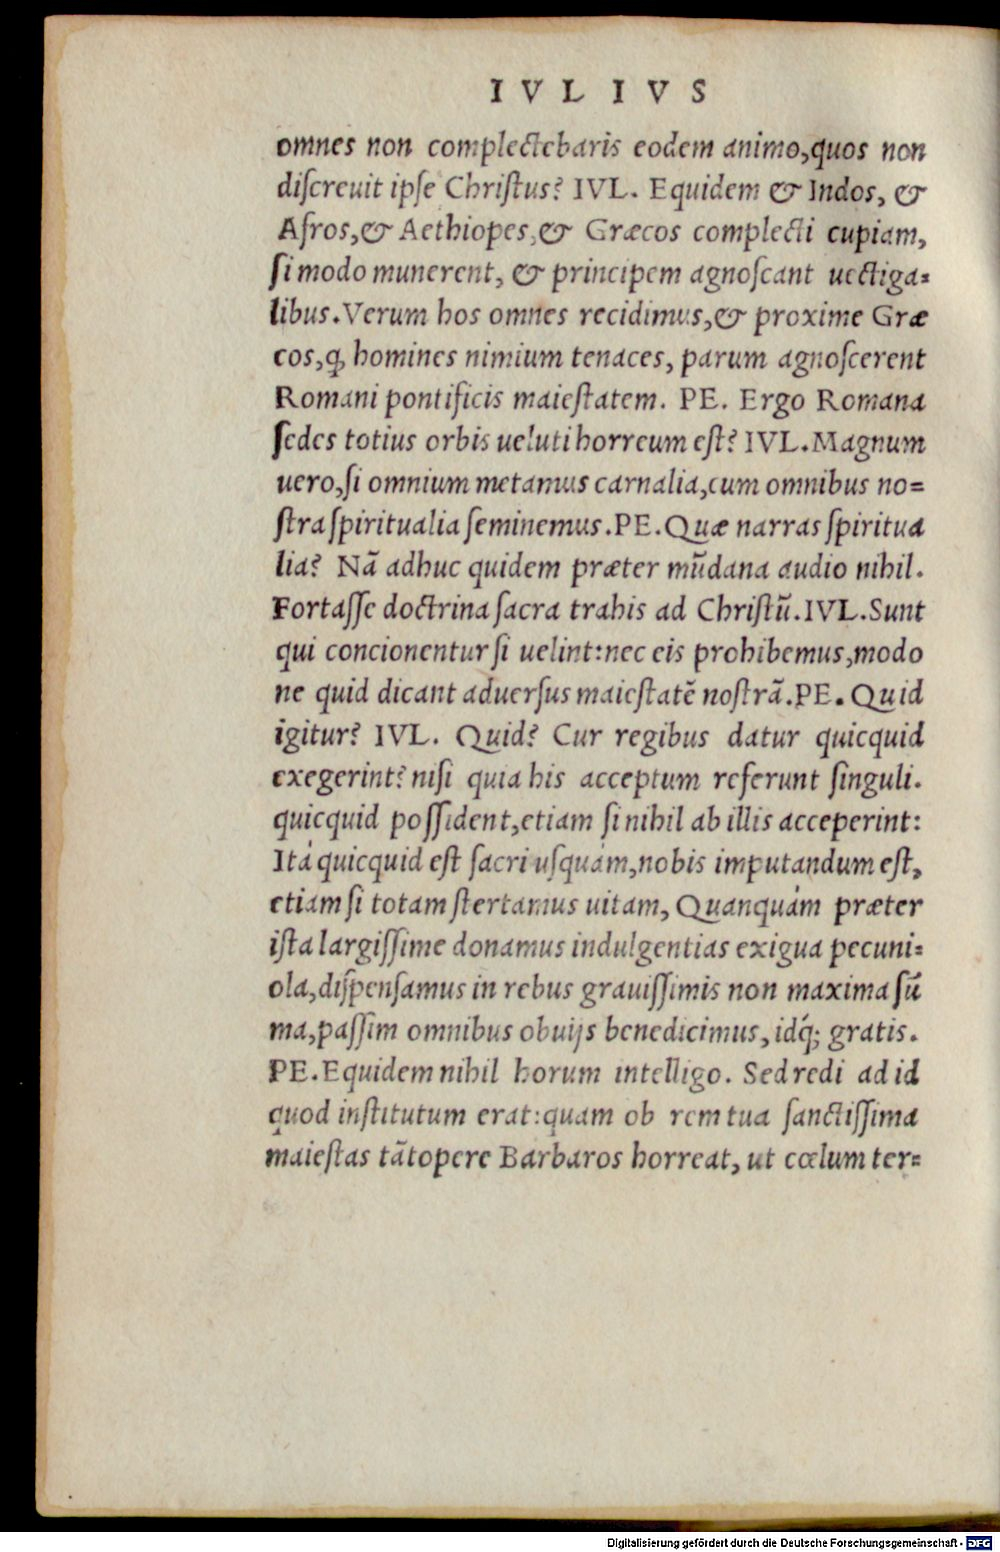 IVLIVS
omnes non complectebaris eodem animo,quos non
diſcreuit ipſe Chriſtus? IVL. Equidem & Indos, &
Afros,& Aethiopes,& Græcos complecti cupiam,
ſi modo munerent, & principem agnoſcant uectiga=
libus.Verum hos omnes recidimus,& proxime Græ
cos,ꝙ homines nimium tenaces, parum agnoſcerent
Romani pontificis maieſtatem. PE. Ergo Romana
ſedes totius orbis ueluti horreum eſt? IVL.Magnum
uero,ſi omnium metamus carnalia,cum omnibus no=
ſtra ſpiritualia ſeminemus.PE.Quæ narras ſpiritua
lia? Nã adhuc quidem præter mũdana audio nihil.
Fortaſſe doctrina ſacra trahis ad Chriſtũ.IVL.Sunt
qui concionentur ſi uelint:nec eis prohibemus,modo
ne quid dicant aduerſus maieſtatẽ noſtrã.PE. Quid
igitur? IVL. Quid? Cur regibus datur quicquid
exegerint? niſi quia his acceptum referunt ſinguli.
quicquid poſſident,etiam ſi nihil ab illis acceperint:
Itá quicquid eſt ſacri uſquàm,nobis imputandum eſt,
etiam ſi totam ſtertamus uitam, Quanquám præter
iſta largiſſime donamus indulgentias exigua pecuni=
ola,diſpenſamus in rebus grauiſſimis non maxima ſũ
ma,paſſim omnibus obuijs benedicimus, idq́; gratis.
PE.Equidem nihil horum intelligo. Sed redi ad id
quod inſtitutum erat:quam ob rem tua ſanctiſſima
maieſtas tãtopere Barbaros horreat, ut cœlum ter=
Digitalisierung gefördert durch die Deutsche Forschungsgemeinschaft - DFG